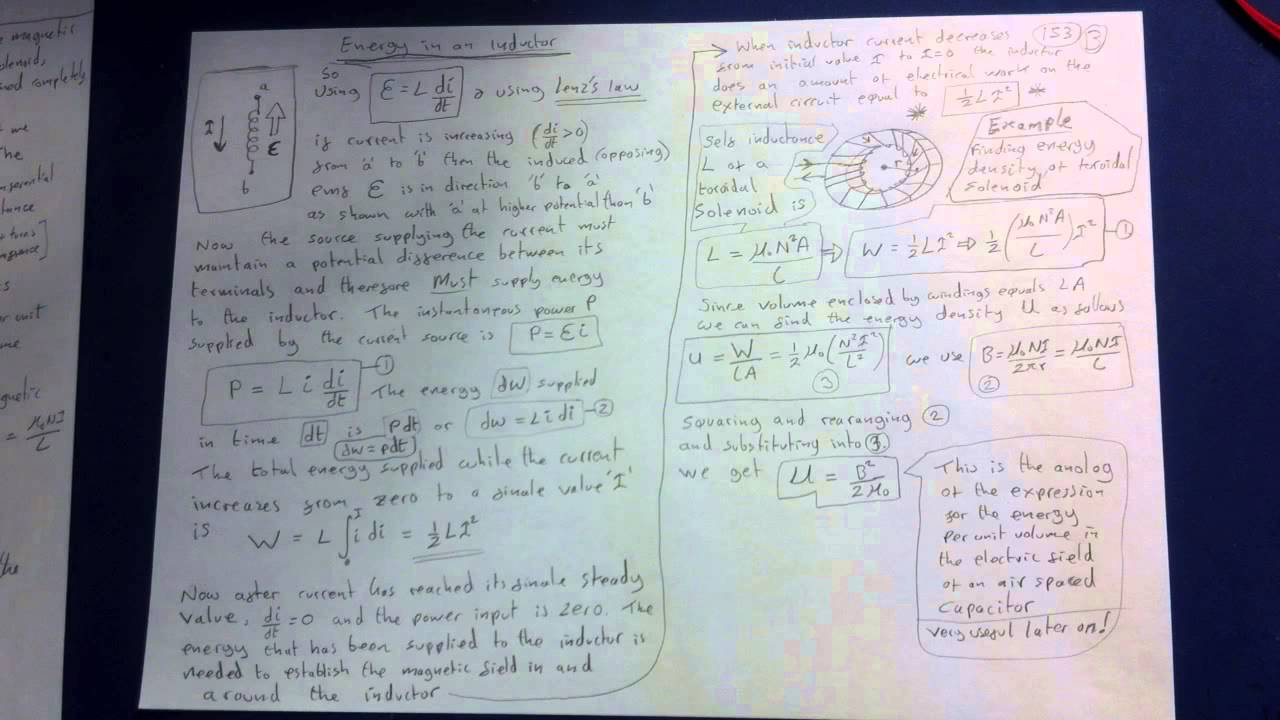 magnetic
solenoid,
completely
The
tance
unit
= μ₀NI/L
the
Energy in an Inductor
a
I
ε
b
So
using ε = L di/dt & using Lenz's law
if current is increasing (di/dt > 0)
from 'a' to 'b' then the induced (opposing)
emf ε is in direction 'b' to 'a'
as shown with 'a' at higher potential than 'b'
Now the source supplying the current must
maintain a potential difference between its
terminals and therefore Must supply energy
to the inductor. The instantaneous power P
supplied by the current source is P = εi
P = L i di/dt ① The energy dw supplied
in time dt is pdt or dw = Li di ②
dw = pdt
The total energy supplied while the current
increases from zero to a finale value 'I'
is W = L ∫₀ᴵ i di = ½LI²
Now after current has reached its finale steady
value, di/dt = 0 and the power input is zero. The
energy that has been supplied to the inductor is
needed to establish the magnetic field in and
around the inductor
153 3
When inductor current decreases
from initial value I to I=0 the inductor
does an amount of electrical work on the
external circuit equal to ½LI² *
*
Self inductance
L of a
toroidal
Solenoid is
r
Example
Finding energy
density of toroidal
solenoid
L = μ₀N²A/L ⇒ W = ½LI² ⇒ ½(μ₀N²A/L)I² ①
Since volume enclosed by windings equals LA
we can find the energy density U as follows
u = W/LA = ½μ₀(N²I²/L²) ③ we use B = μ₀NI/2πr = μ₀NI/L ②
Squaring and rearanging ②
and substituting into ③.
we get U = B²/2μ₀
This is the analog
of the expression
for the energy
per unit volume in
the electric field
of an air spaced
capacitor
very useful later on!